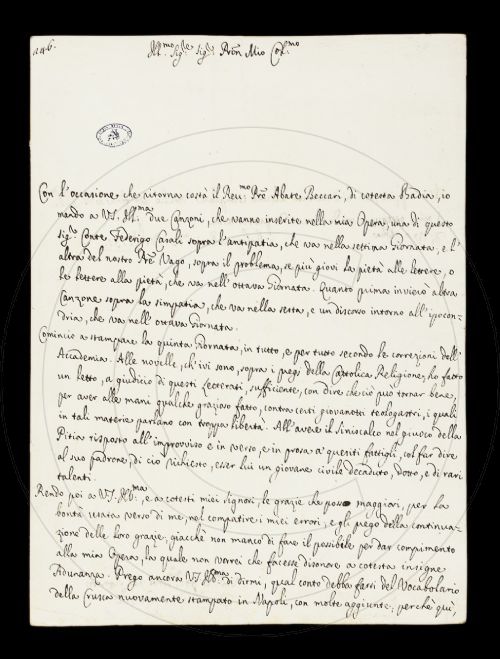 246.
Ill.mo Sig.re Sig.re Pron Mio Col.mo
Con l'occasione che ritorna costà il Reu.mo Pre Abate Beccari, di cotesta Badia, io
mando a VS. Ill.ma due Canzoni, che vanno inserite nella mia Opera, una di questo
Sig.r Conte Federigo Casali sopra l'antipatia, che va nella settima Giornata, e l'
altra del nostro Pre Vago, sopra il problema, se più giovi la pietà alle lettere, o
le lettere alla pietà, che va nell'ottava Giornata. Quanto prima invierò altra
Canzone sopra la simpatia, che va nella sesta, e un discorso intorno all'ipocon-
dria, che va nell'ottava Giornata.
Comincio a stampare la quinta Giornata, in tutto, e per tutto secondo le correzioni dell'
Accademia. Alle novelle, ch'ivi sono, sopra i pregi della Cattolica Religione, ho fatto
un letto, a giudicio di questi Letterati, sufficiente, con dire che ciò può tornar bene,
per aver alle mani qualche grazioso fatto, contra certi giovanotti teologastri, i quali
in tali materie parlano con troppa libertà. All'avere il Siniscalco nel giuoco della
Pitia risposto all'improvviso e in verso, e in prosa a' quesiti fattigli, col far dire
al suo padrone, di ciò richiesto, esser lui un giovane civile decaduto, dotto, e di rari
talenti.
Rendo poi a VS. Ill.ma, e a cotesti miei Signori, le grazie che posso maggiori, per la
bontà usata verso di me, nel compatire i miei errori, e gli prego della continua-
zione delle loro grazie, giacchè non manco di fare il possibile per dar compimento
alla mia Opera, la quale non vorrei che facesse disonore a cotesta insigne
Adunanza. Prego ancora VS. Ill.ma di dirmi, qual conto debba farsi del Vocabolario
della Crusca nuovamente stampato in Napoli, con molte aggiunte; perchè quì,